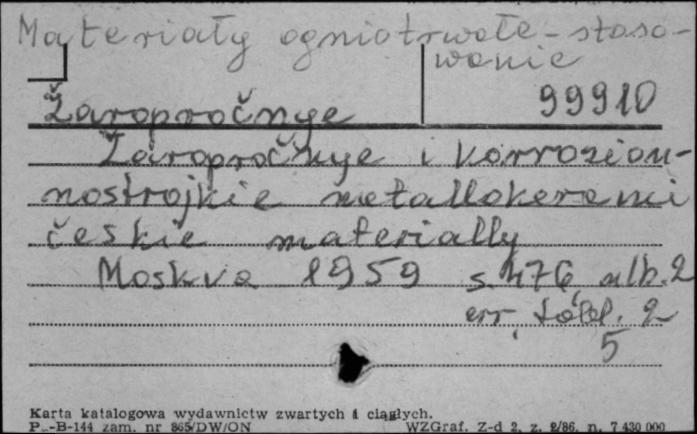 Materiały ogniotrwałe - stoso-
wanie
Žaropročnye
99910
Žaropročnye i korrozion-
nostrojkie metallokerami
českie materially
Moskva 1959 s. 476, alb. 2
err. tabl. 2
5
Karta katalogowa wydawnictw zwartych i ciągłych.
P.-B-144 zam. nr 865/DW/ON
WZGraf. Z-d 2, z. 2/86. n. 7 430 000